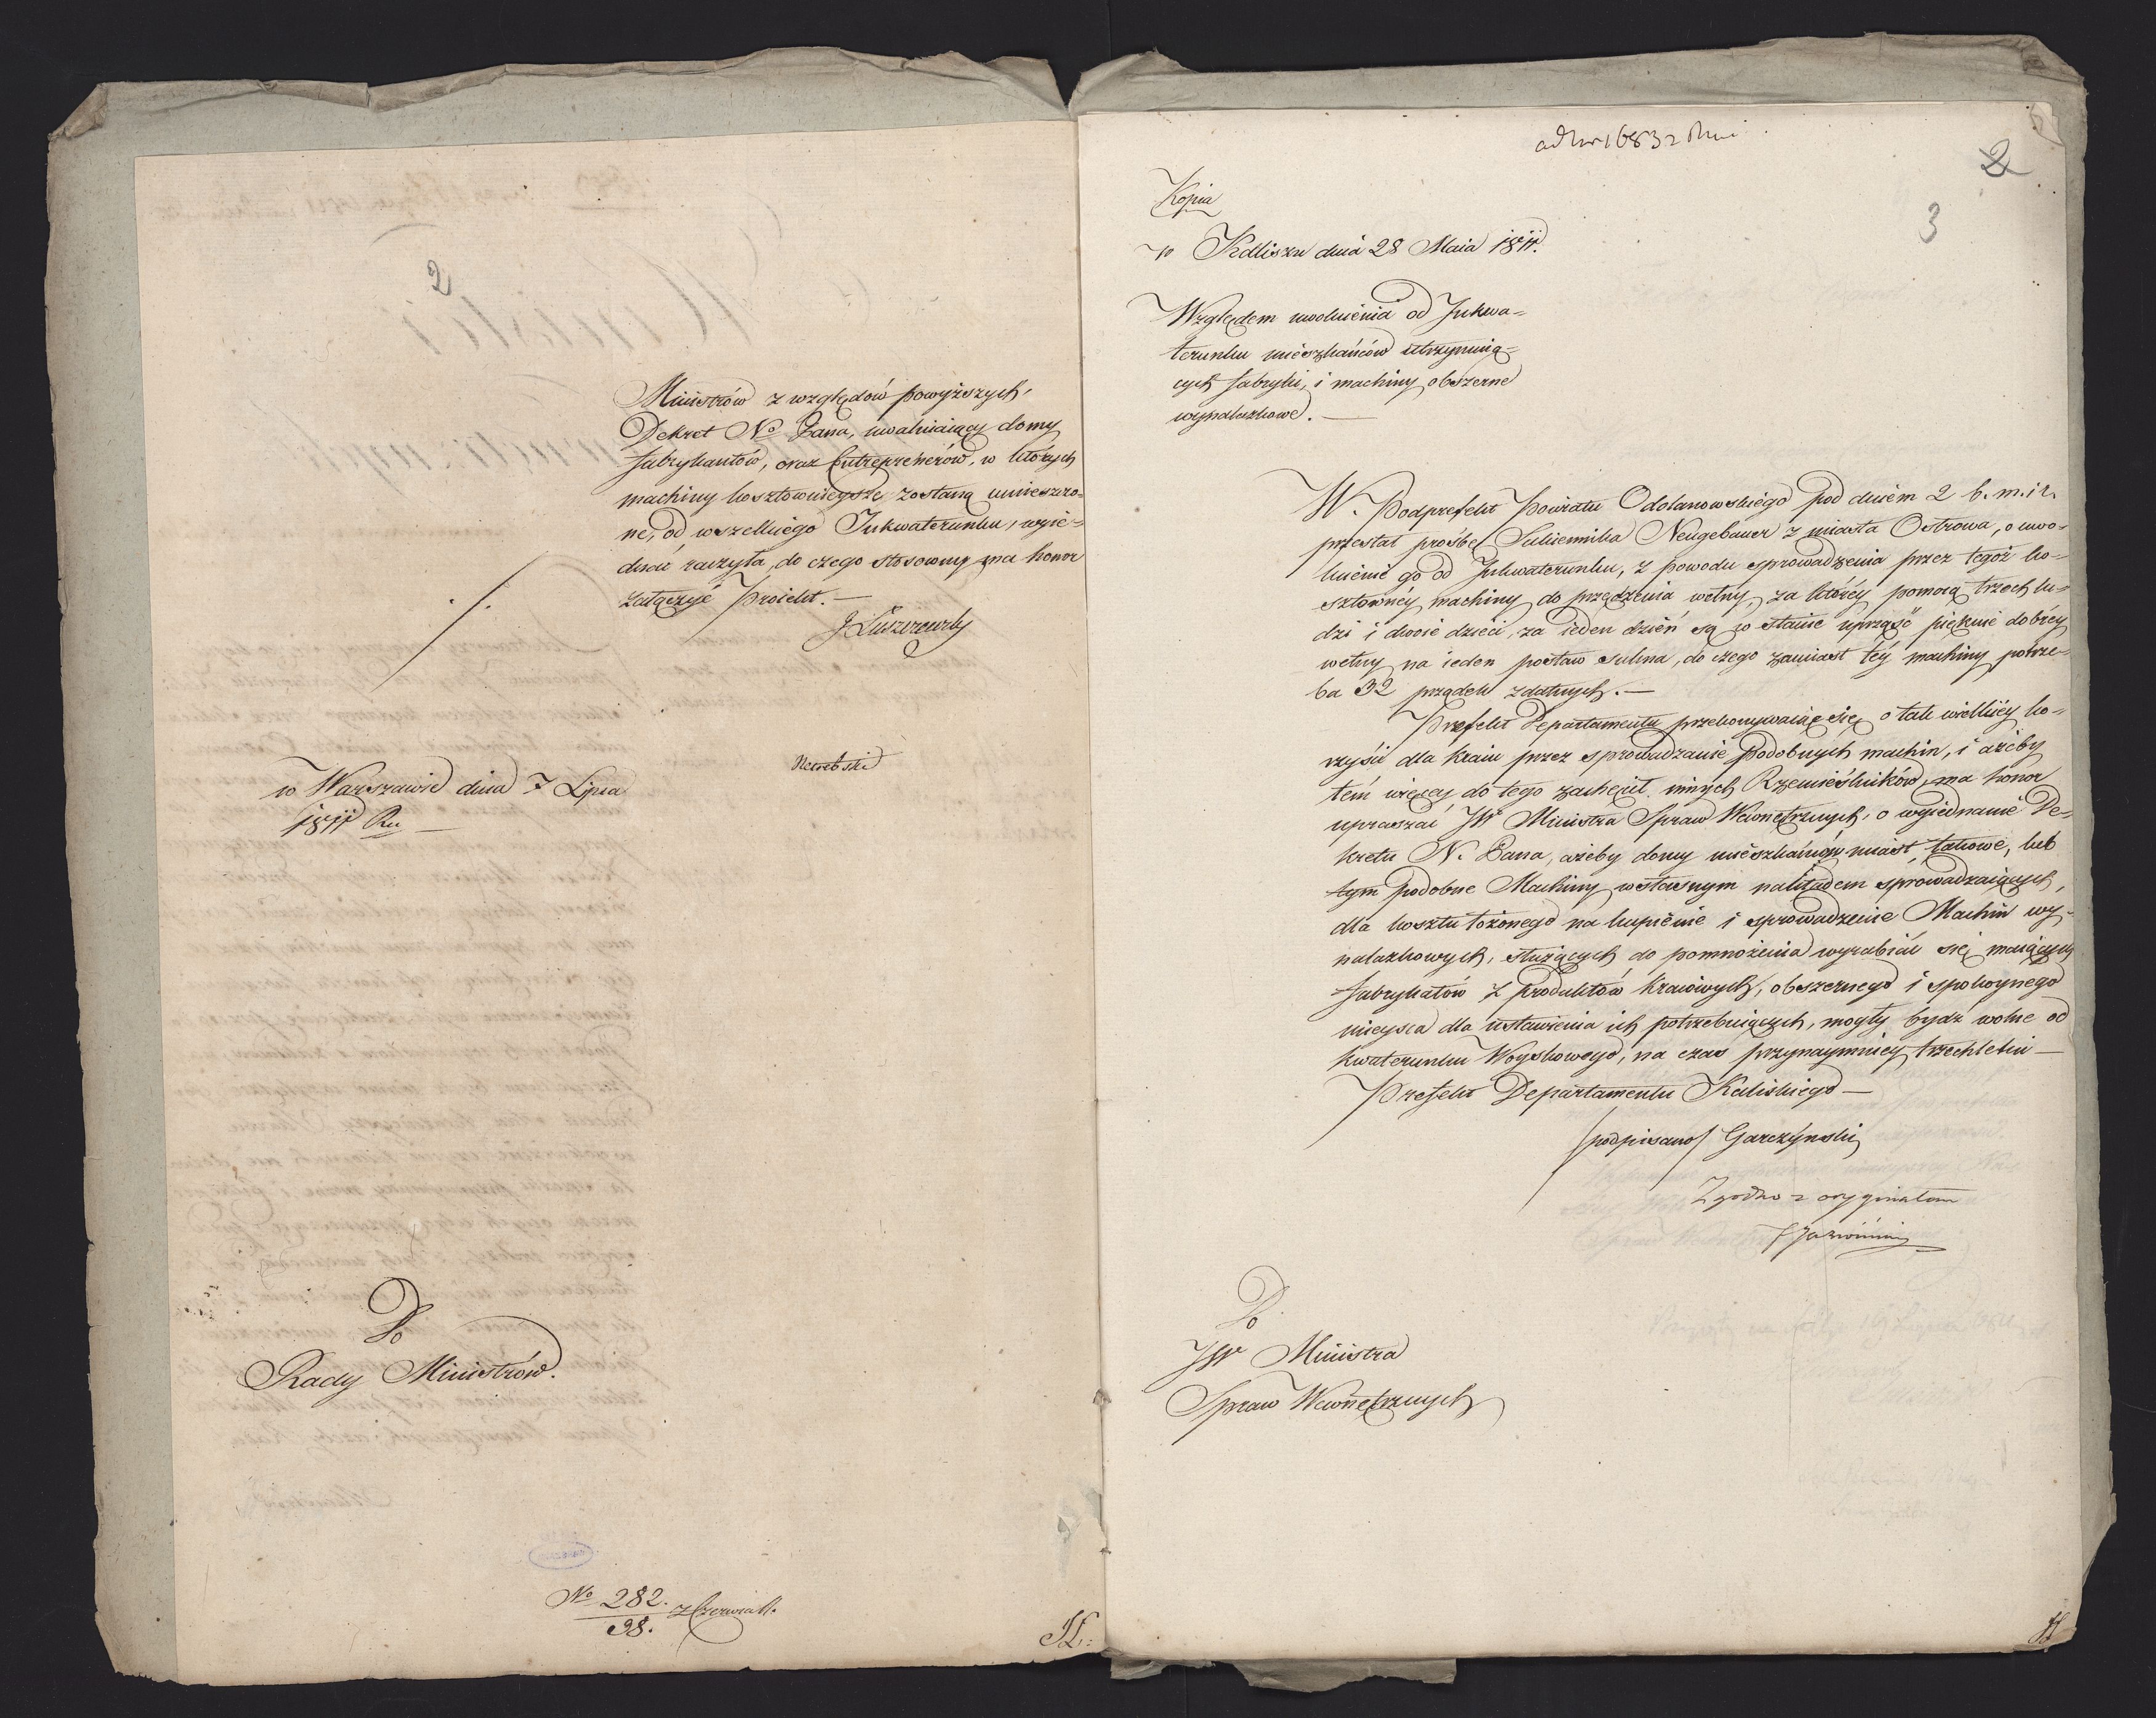 2
Ministrów z względów powyższych,
Dekret No Pana, uwalniaiący domy
fabrykantów, oraz Entreprenerów, w których
machiny kosztownieysze zostaną umieszczo=
ne, od wszelkiego Inkwaterunku, wyie=
dnać raczyła, do czego stosowny ma honor
załączyć Proiekt. —
J Łuszczewski
w Warszawie dnia 7 Lipca
1811 Ru —
Do
Rady Ministrów.
No 282. z Czerwca
38.
ad Nr 1683
2
3
Kopia
w Kaliszu dnia 28 Maia 1811.
Względem uwolnienia od Inkwa=
terunku mieszkańców utrzymuią=
cych fabryki, i machiny obszerne
wynalazkowe. —
W. Podprefekt Powiatu Odolanowskiego pod dniem 2 b. m. i r.
przesłał prośbę Sukiennika Neugebauer z miasta Ostrowa, o uwo=
lnienie go od Inkwaterunku, z powodu sprowadzenia przez tegoż ko=
sztownéy machiny do przędzenia wełny, za któréy pomocą trzech lu=
dzi i dwoie dzieci, za ieden dzień są w stanie uprząść pięknie dobréy
wełny na ieden postaw sukna, do czego zamiast téy machiny potrze=
ba 32 prządek zdatnych. —
Prefekt Departamentu przekonywaiąc się o tak wielkiéy ko=
rzyści dla Kraiu przez sprowadzanie podobnych machin, i ażeby
tém więcey do tego zachęcił innych Rzemieślników, ma honor
upraszać JW Ministra Spraw Wewnętrznych, o wyiednanie De=
kretu N. Pana, ażeby domy mieszkańców miast, takowe, lub
tym podobne Machiny własnym nakładem sprowadzaiących,
dla kosztu łożonego na kupienie i sprowadzenie Machin wy=
nalazkowych, służących do pomnożenia wyrabiać się maiących
fabrykatów z produktów Kraiowych, obszernego i spokoynego
mieysca dla ustawienia ich potrzebuiących, mogły bydź wolne od
kwaterunku Woyskowego, na czas przynaymniey trzechletni —
Prefekt Departamentu Kaliskiego —
/podpisano/ Garczyński
Zgodno z oryginałem
Do
JW Ministra
Spraw Wewnętrznych